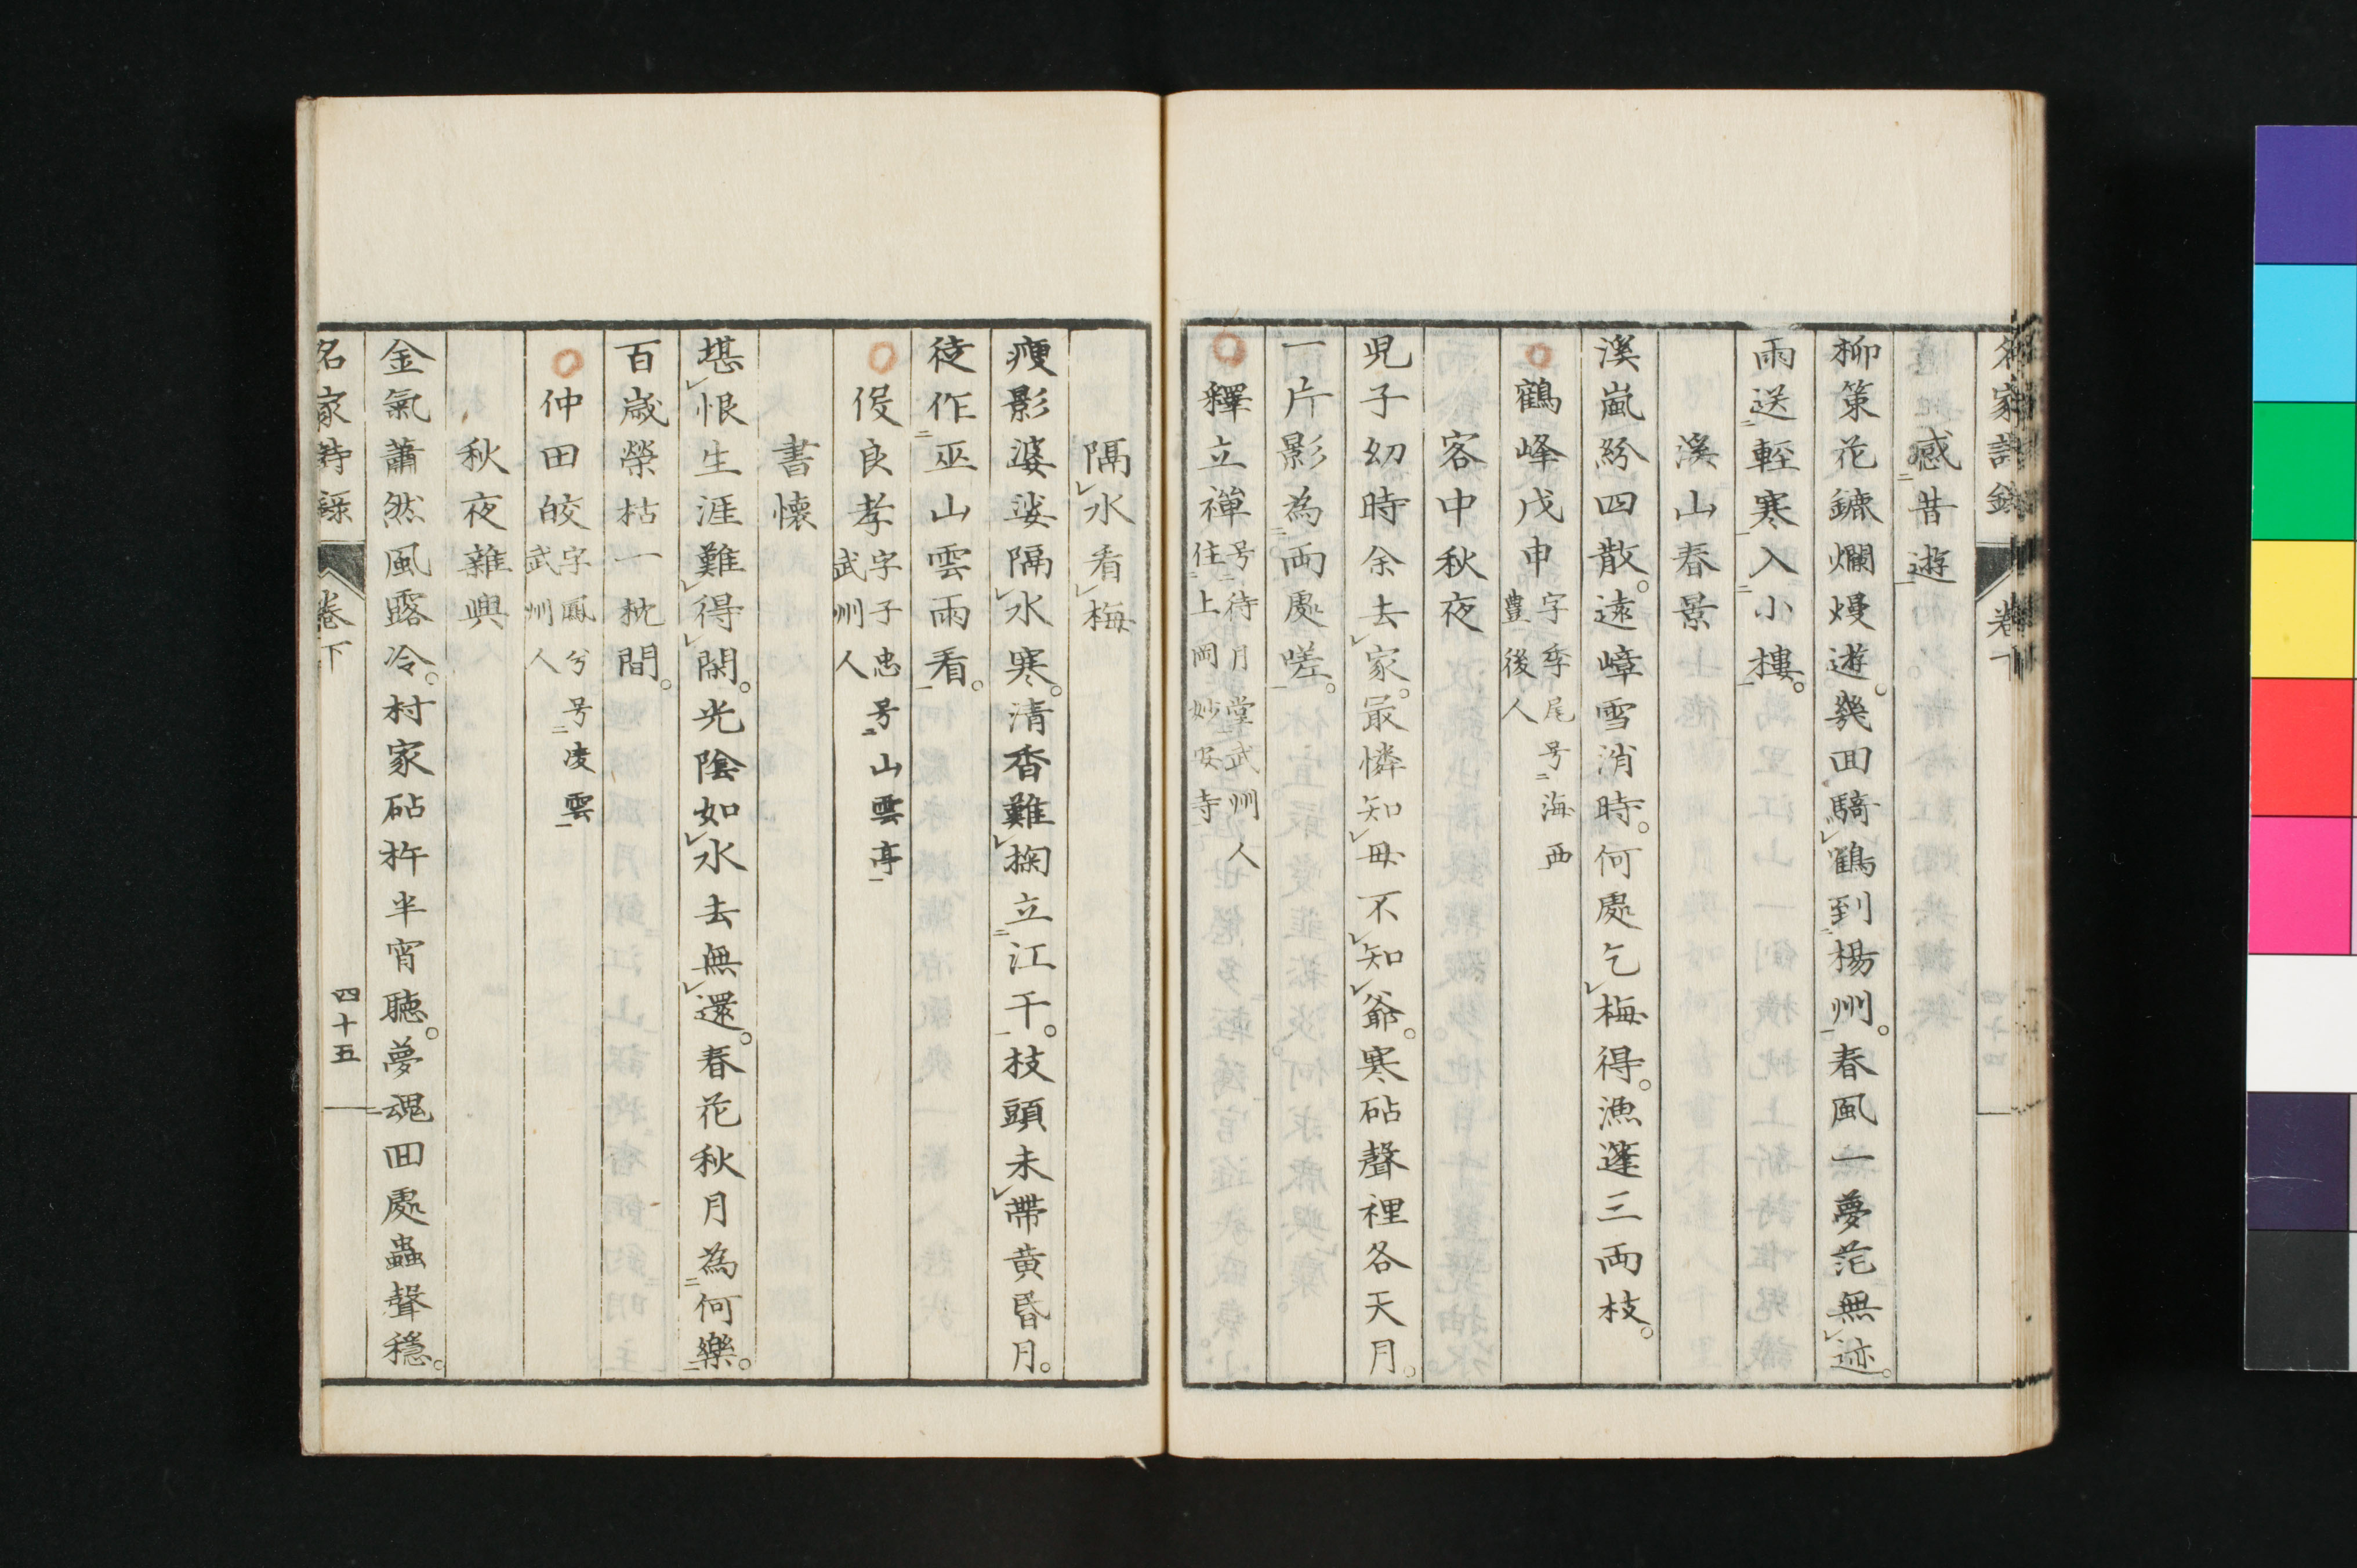 名家詩錄 卷下
感昔遊
柳策花鑣爛熳遊。幾回騎鶴到楊州。春風一夢茫無迹。
雨送輕寒入小樓。
溪山春景
溪嵐紛四散。遠嶂雪消時。何處乞梅得。漁篷三両枝。
鶴峰戊申 字季尾号海西
豊後人
客中秋夜
児子幼時余去家。最憐知毋不知爺。寒砧聲裡各天月。
一片影為両處嗟。
釋立禪 号待月堂武州人
住上岡妙安寺
隔水看梅
瘦影婆娑隔水寒。清香難掬立江干。枝頭未帶黄昏月。
徒作巫山雲雨看。
伇良孝 字子忠号山雲亭
武州人
書懐
堪恨生涯難得閑。光陰如水去無還。春花秋月為何樂。
百歳榮枯一枕間。
仲田皎 字鳳兮号凌雲
武州人
秋夜雜興
金氣蕭然風露冷。村家砧杵半宵聴。夢魂回處蟲聲穩。
名家詩録 卷下 四十五